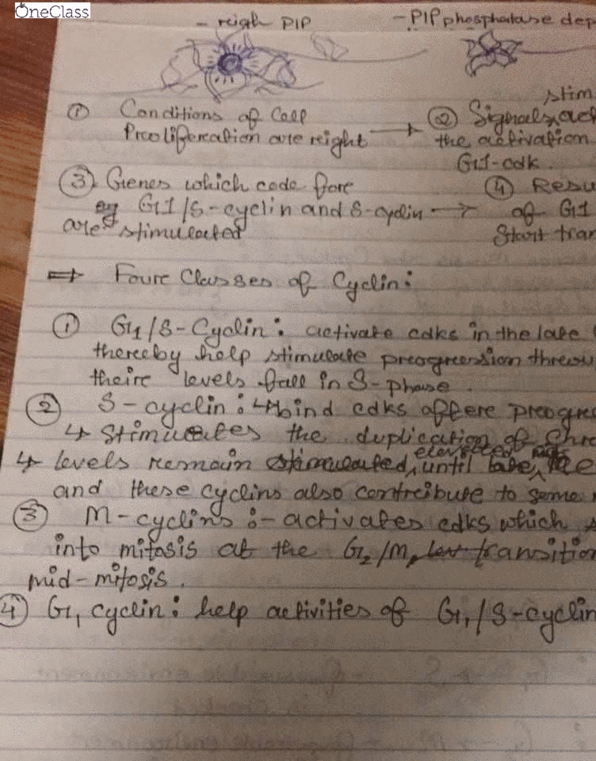 OneClass
- reigh PIP
- PIP phosphatase dep
① Conditions of Cell
Preoliferation are reight →
stim
② Signals, act
the activation
G1-cdk.
③ Genes which code fore
eg G1/S-cyclin and S-cyclin →
are stimulated
④ Resu
of G1
Start tran
⇒ Foure Classes of Cyclin:
① G1/S-Cyclin: activate cdks in the late
thereby help stimulate preogression threou
theire levels fall in S-phase.
② S-cyclin: ↳ bind cdks aftere preogre
↳ Stimulates the duplication of Chro
↳ levels remain elevated until late
and these cyclins also contribute to some
③ M-cyclins :- activates cdks which s
into mitosis at the G2/M, transition
mid-mitosis.
④ G1, cyclin: help activities of G1/S-cyclin